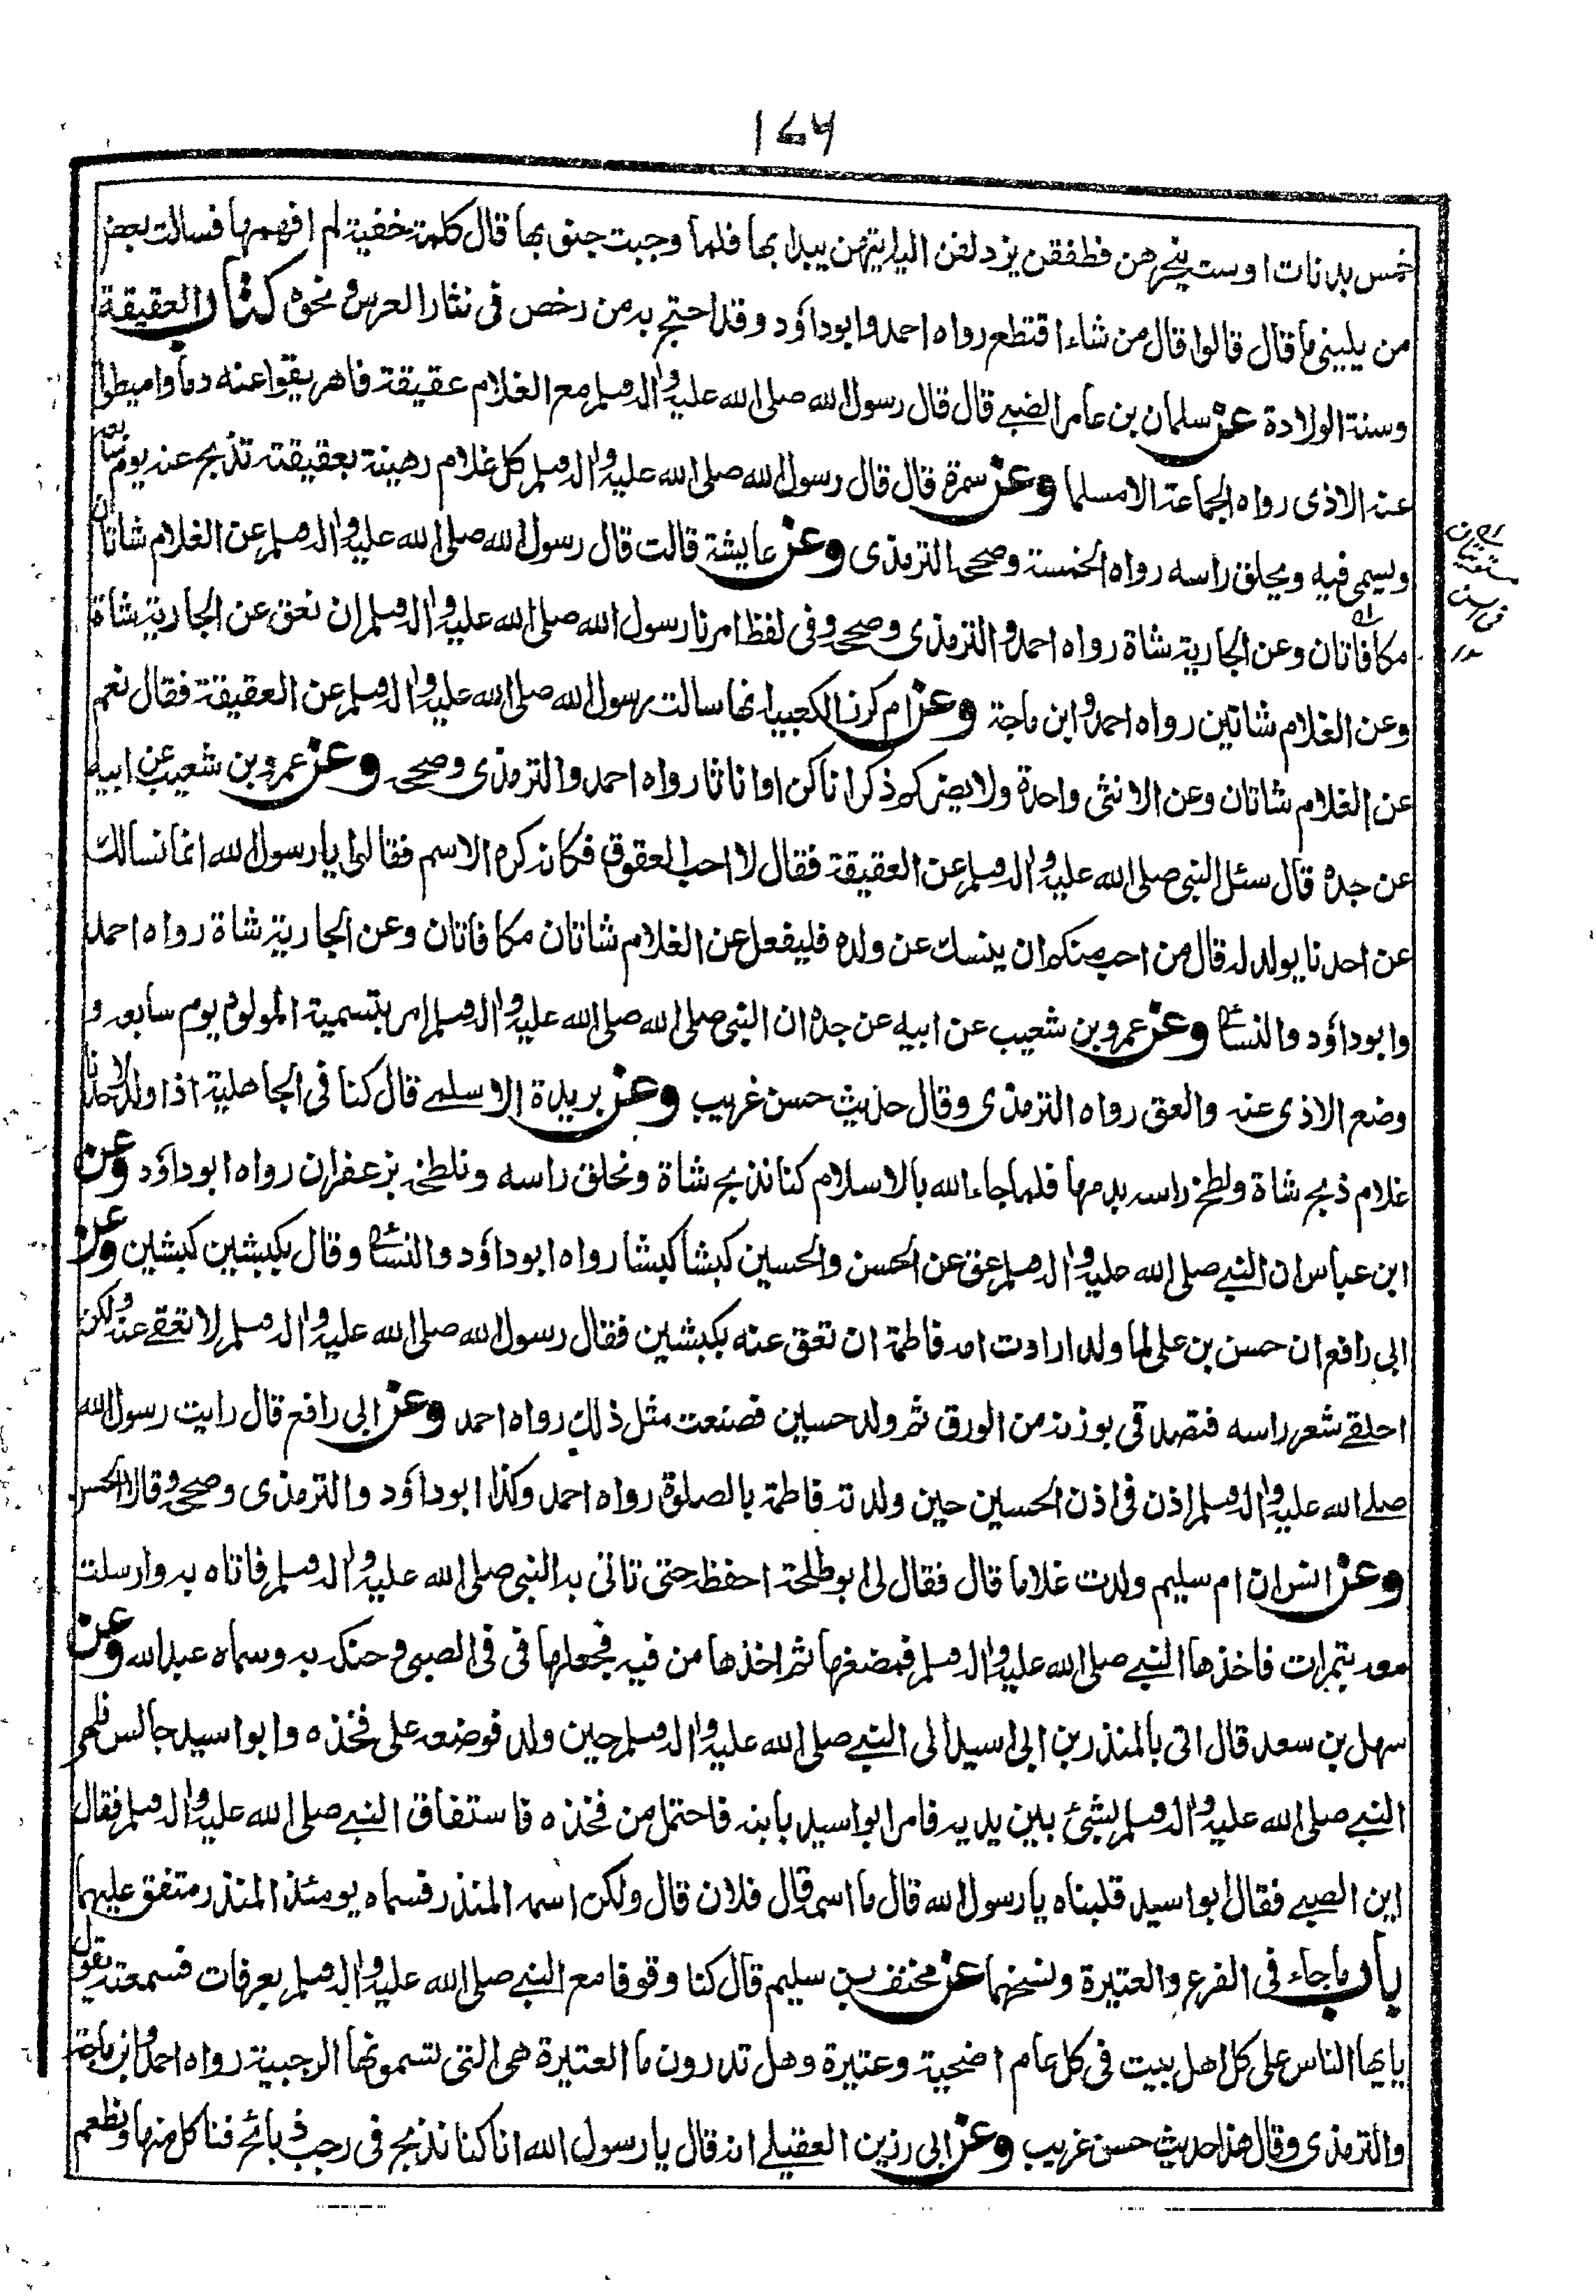 ١٧٦
خمس بدنات اوست ينحرهن فطفقن يزدلفن اليه ايتهن يبدا بها فلما وجبت جنوبها قال كلمة خفية لم افهمها فسالت بعض
من يلينى ما قال قالوا قال من شاء اقتطع رواه احمد وابوداؤد وقد احتج به من رخص فى نثار العرس ونحوه كتاب العقيقة
وسنة الولادة عن سلمان بن عامر الضبے قال قال رسول الله صلى الله عليه واله وسلم مع الغلام عقيقة فاهريقوا عنه دما واميطوا
عنه الاذى رواه الجماعة الا مسلما وعن سمرة قال قال رسول الله صلى الله عليه واله وسلم كل غلام رهينة بعقيقته تذبح عنه يوم سابعه
ويسمى فيه ويحلق راسه رواه الخمسة وصححه الترمذى وعن عايشة قالت قال رسول الله صلى الله عليه واله وسلم عن الغلام شاتان
مكافاتان وعن الجارية شاة رواه احمد والترمذى وصححه وفى لفظ امرنا رسول الله صلى الله عليه واله وسلم ان نعق عن الجارية شاة
وعن الغلام شاتين رواه احمد وابن ماجة وعن ام كرز الكعبية انها سالت رسول الله صلى الله عليه واله وسلم عن العقيقة فقال نعم
عن الغلام شاتان وعن الانثى واحدة ولا يضركم ذكرانا كن او اناثا رواه احمد والترمذى وصححه وعن عمرو بن شعيب عن ابيه
عن جده قال سئل النبى صلى الله عليه واله وسلم عن العقيقة فقال لا احب العقوق فكانه كره الاسم فقالوا يا رسول الله انما نسالك
عن احدنا يولد له قال من احب منكم ان ينسك عن ولده فليفعل عن الغلام شاتان مكافاتان وعن الجارية شاة رواه احمد
وابوداؤد والنسائى وعن عمرو بن شعيب عن ابيه عن جده ان النبى صلى الله صلى الله عليه واله وسلم امر بتسمية المولود يوم سابعه و
وضع الاذى عنه والعق رواه الترمذى وقال حديث حسن غريب وعن بريدة الاسلمے قال كنا فى الجاهلية اذا ولد لاحدنا
غلام ذبح شاة ولطخ راسه بدمها فلما جاء الله بالاسلام كنا نذبح شاة ونحلق راسه ونلطخه بزعفران رواه ابوداؤد وعن
ابن عباس ان النبے صلى الله عليه واله وسلم عق عن الحسن والحسين كبشا كبشا رواه ابوداؤد والنسائى وقال بكبشين كبشين وعن
ابى رافع ان حسن بن على لما ولد ارادت امه فاطمة ان تعق عنه بكبشين فقال رسول الله صلى الله عليه واله وسلم لا تعقے عنه ولكن
احلقے شعر راسه فتصدقى بوزنه من الورق ثم ولد حسين فصنعت مثل ذلك رواه احمد وعن ابى رافع قال رايت رسول الله
صلے الله عليه واله وسلم اذن فى اذن الحسين حين ولدته فاطمة بالصلوة رواه احمد وكذا ابوداؤد والترمذى وصححه وقالا الحسن
وعن انس ان ام سليم ولدت غلاما قال فقال لى ابو طلحة احفظه حتى تاتى به النبى صلى الله عليه واله وسلم فاتاه به وارسلت
معه بتمرات فاخذها النبے صلى الله عليه واله وسلم فمضغها ثم اخذها من فيه فجعلها فى فى الصبى وحنكه به وسماه عبدالله وعن
سهل بن سعد قال اتى بالمنذر بن ابى اسيد الى النبے صلى الله عليه واله وسلم حين ولد فوضعه على فخذه وابو اسيد جالس فلهى
النبے صلى الله عليه واله وسلم بشئ بين يديه فامر ابو اسيد بابنه فاحتمل من فخذه فاستفاق النبے صلى الله عليه واله وسلم فقال
اين الصبے فقال ابو اسيد قلبناه يا رسول الله قال ما اسمه قال فلان قال ولكن اسمه المنذر فسماه يومئذ المنذر متفق عليهما
باب ما جاء فى الفرع والعتيرة ونسخهما عن مخنف بن سليم قال كنا وقوفا مع النبے صلى الله عليه واله وسلم بعرفات فسمعته يقول
يايها الناس على كل اهل بيت فى كل عام اضحية وعتيرة وهل تدرون ما العتيرة هى التى تسمونها الرجبية رواه احمد وابن ماجة
والترمذى وقال هذا حديث حسن غريب وعن ابى رزين العقيلے انه قال يا رسول الله انا كنا نذبح فى رجب ذبائح فناكل منها ونطعم